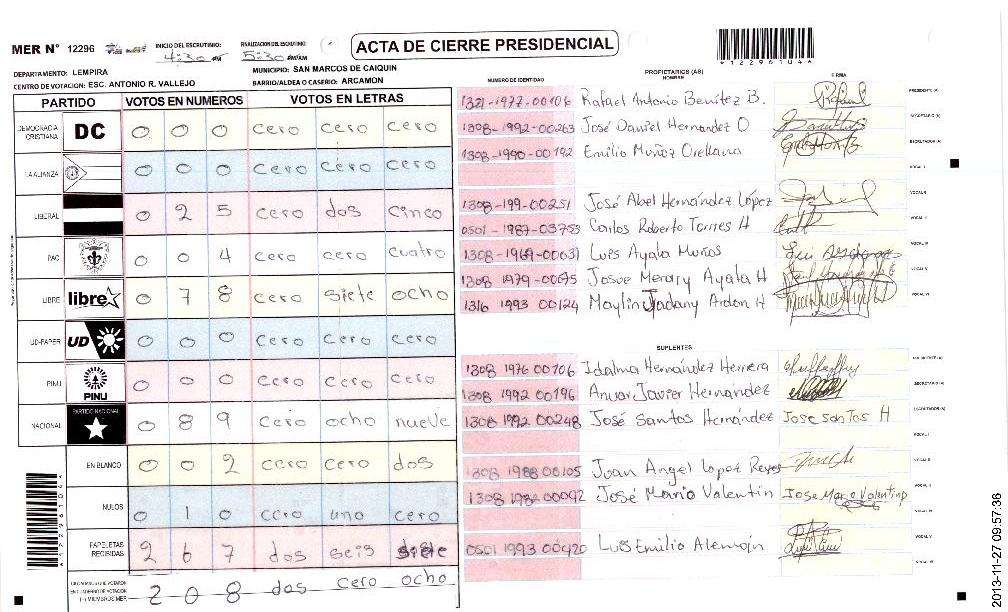 MER N° 12296
INICIO DEL ESCRUTINIO: 4:30 PM
FINALIZACION DEL ESCRUTINIO 5:30 PM/AM
ACTA DE CIERRE PRESIDENCIAL
1229610 4
DEPARTAMENTO: LEMPIRA
MUNICIPIO: SAN MARCOS DE CAIQUIN
CENTRO DE VOTACION: ESC. ANTONIO R. VALLEJO
BARRIO/ALDEA O CASERIO: ARCAMON
PARTIDO VOTOS EN NUMEROS VOTOS EN LETRAS
DEMOCRACIA CRISTIANA DC 0 0 0 cero cero cero
LA ALIANZA 0 0 0 cero cero cero
LIBERAL 0 2 5 cero dos cinco
PAC 0 0 4 cero cero cuatro
LIBRE libre 0 7 8 cero siete ocho
UD-FAPER UD 0 0 0 cero cero cero
PINU PINU 0 0 0 cero cero cero
NACIONAL PARTIDO NACIONAL 0 8 9 cero ocho nueve
EN BLANCO 0 0 2 cero cero dos
NULOS 0 1 0 cero uno cero
PAPELETAS RECIBIDAS 2 6 7 dos seis siete
CIUDADANOS QUE VOTARON EN CUADERNO DE VOTACION (+) MIEMBROS MER 2 0 8 dos cero ocho
NUMERO DE IDENTIDAD
PROPIETARIOS (AS)
NOMBRE
FIRMA
1321-1977-00106 Rafael Antonio Benítez B. Rafael PRESIDENTE (A)
1308-1992-00263 José Daniel Hernandez O SECRETARIO (A)
1308-1990-00192 Emilio Muñoz Orellana ESCRUTADOR (A)
VOCAL I
1308-199-00251 José Abel Hernández López VOCAL II
0501-1987-03753 Carlos Roberto Torres H
1308-1969-00031 Luis Ayala Muños
1308 1979-00095 Josue Merary Ayala H VOCAL V
1316 1993 00124 Maylin Jadany Ardon H VOCAL VI
SUPLENTES
1308 1976 00106 Idalma Hernández Herrera PRESIDENTE (A)
1308 1992 00196 Anuar Javier Hernández SECRETARIO (A)
1308 1992 00248 José Santos Hernández Jose santos H ESCRUTADOR (A)
VOCAL I
1308 1988 00105 Juan Angel Lopez Reyes
1308 1982 00092 José Mario Valentín Jose Mario Valentin
0501 1993 00420 Luis Emilio Alemán VOCAL V
2013-11-27 09:57:36